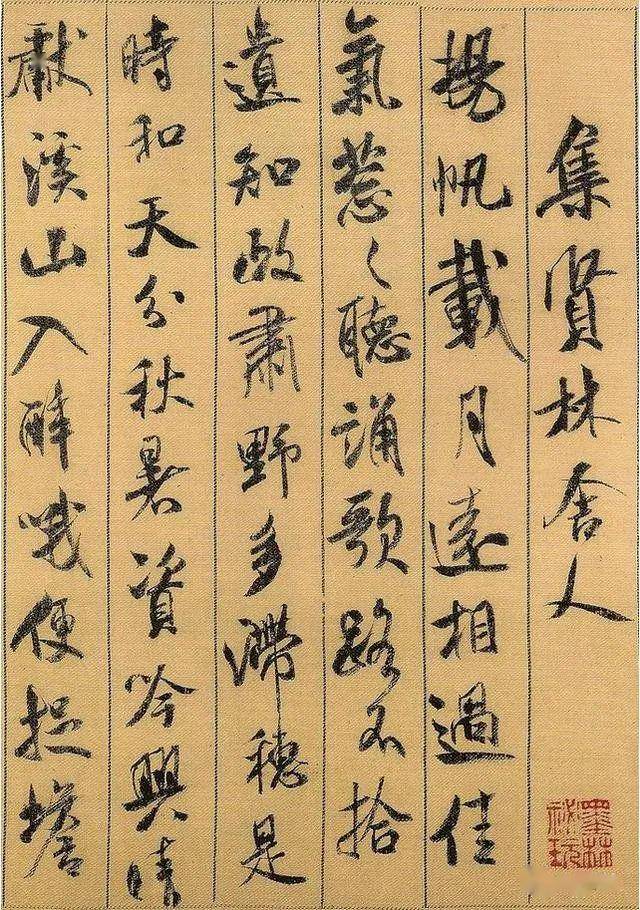 集賢林舍人
揚帆載月遠相過佳
氣葱々聽誦歌路不拾
遺知政肅野多滯穗是
時和天分秋暑資吟興晴
獻溪山入醉哦便捉蟾
墨林
秘玩